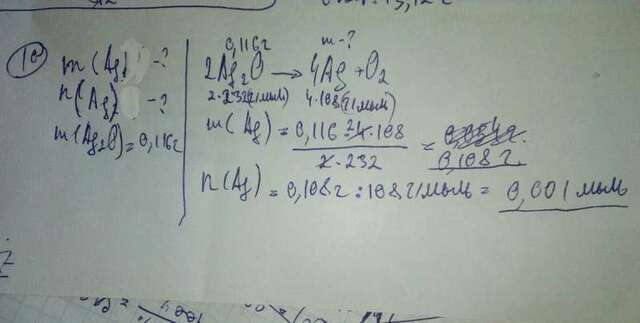 10
m(Ag) -?
n(Ag) -?
m(Ag₂O)=0,116г
0,116г m-?
2Ag₂O → 4Ag + O₂
2·232(г/моль) 4·108(г/моль)
m(Ag) = 0,116·4·108 / 2·232 = 0,108г.
n(Ag) = 0,108г : 108г/моль = 0,001 моль